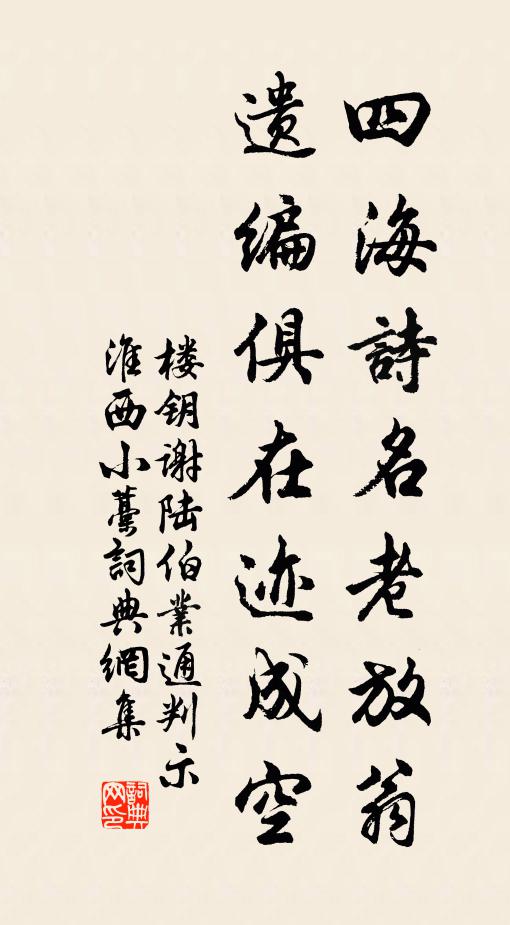 四海詩名老放翁
遗编俱在迹成空
楼钥谢陆伯業通判示
淮西小藁詞典網集
詞典网印